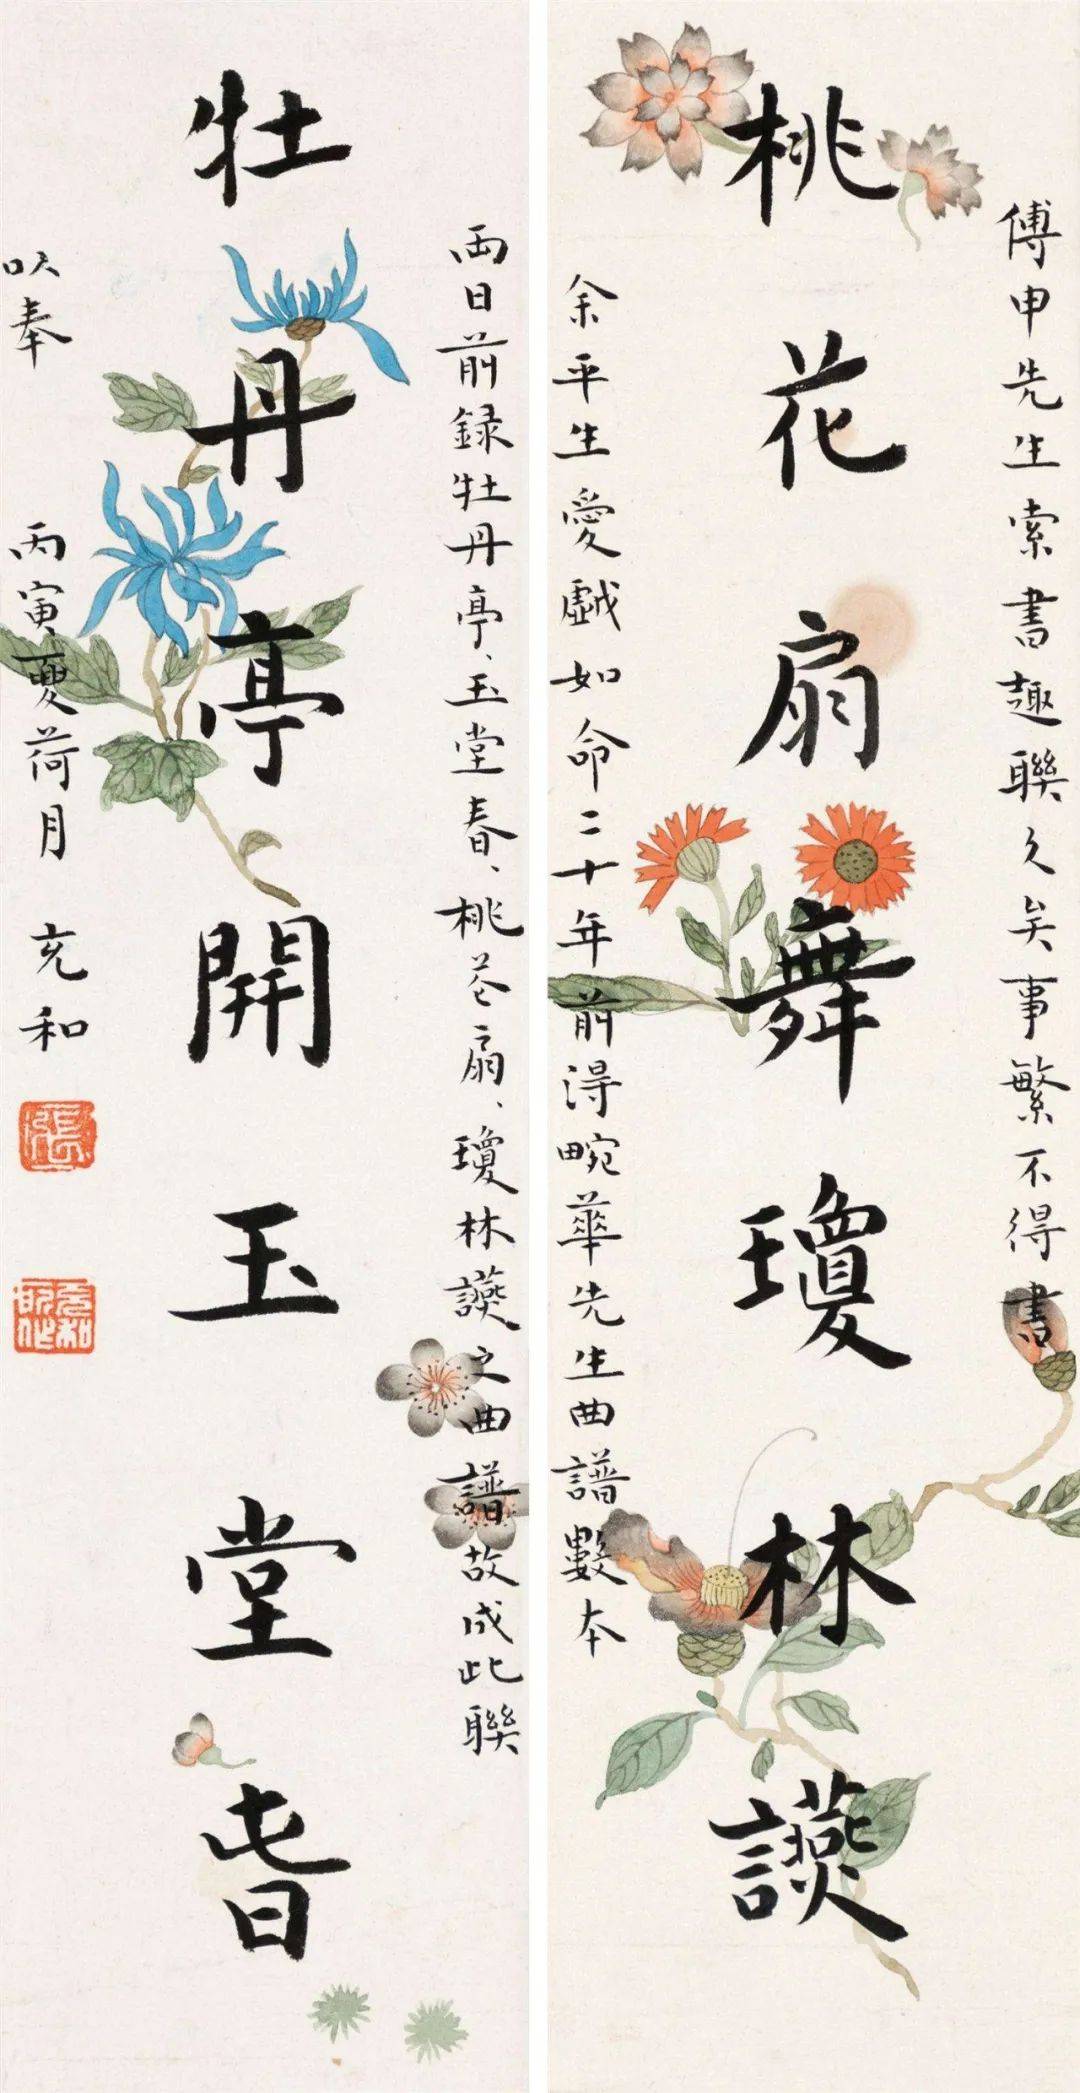 傅申先生索書趣聯久矣事繁不得書
桃花扇舞瓊林讌
余平生愛戲如命二十年前得畹華先生曲譜數本
兩日前録牡丹亭、玉堂春、桃花扇、瓊林讌之曲譜故成此聯
牡丹亭開玉堂春
以奉 丙寅夏荷月 充和
張
充和所作